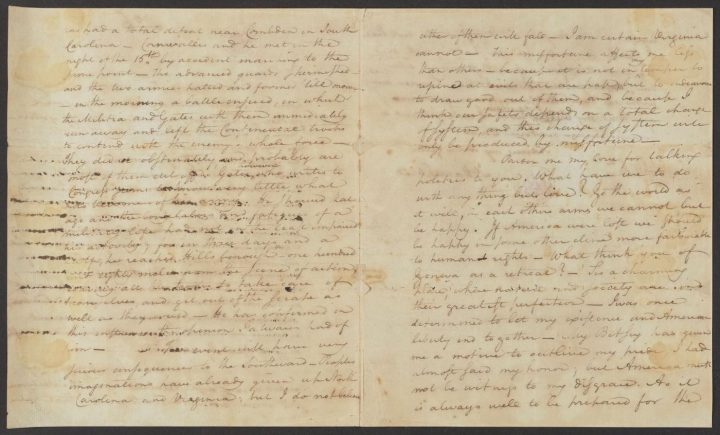 has had a total defeat near Cambden in South
Carolina – Cornwallis and he met in the
night of the 15th by accident marching to the
same point – The advanced guards skirmished
and the two armies halted and formed till morn
– in the morning a battle ensued, in which
the Militia and Gates with them immediately
ran away and left the Continental troops
to contend with the enemy's whole force –
They did it obstinately and probably are
most of them cut off. Gates who writes to
Congress seems to know very little what
has become of his army. He showed that
age and the
military life has not in the least impaired
his activity; for in three days and a
half, he reached Hills borough, one hundred
and eighty miles from the scene of action
leaving all to take care of
themselves and get out of the scrape as
well as they could – He has confirmed in
this the opinion I always had of
him – This event will have very
serious consequences to the Southward – Peoples
imaginations have already given up North
Carolina and Virginia; but I do not believe
either of them will fall – I am certain Virginia
cannot – This misfortune affects me less
than others – because it is not in my temper to
repine at evils that are past, but to endeavour
to draw good out of them, and because I
think our safety depends on a total change
of system, and this change of system will
only be produced by misfortune –
Pardon me my love for talking
politics to you. What have we to do
with any thing but love? Go the world as
it will, in each others arms we cannot but
be happy. If America were lost we should
be happy in some other clime more favourable
to human rights – What think you of
Geneva as a retreat? – Tis a charming
place; where nature and society are in
their greatest perfection – I was once
determined to let my existence and American
liberty end together – My Betsey has given
me a motive to outlive my pride, I had
almost said my honor; but America must
not be witness to my disgrace. As it
is always well to be prepared for the